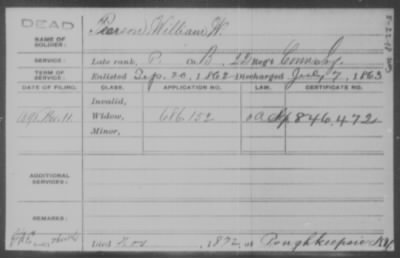 DEAD
NAME OF SOLDIER: Pearson William W.
SERVICE: Late rank, P. Co. B, 22 Reg't Conn. Inf.
TERM OF SERVICE: Enlisted Sep. 20, 1862 Discharged July 7, 1863
DATE OF FILING. CLASS. APPLICATION NO. LAW. CERTIFICATE NO.
Invalid,
Widow, 686,152 846,472
Minor,
ADDITIONAL SERVICES:
REMARKS:
Died Nov , 1872, at Poughkeepsie NY